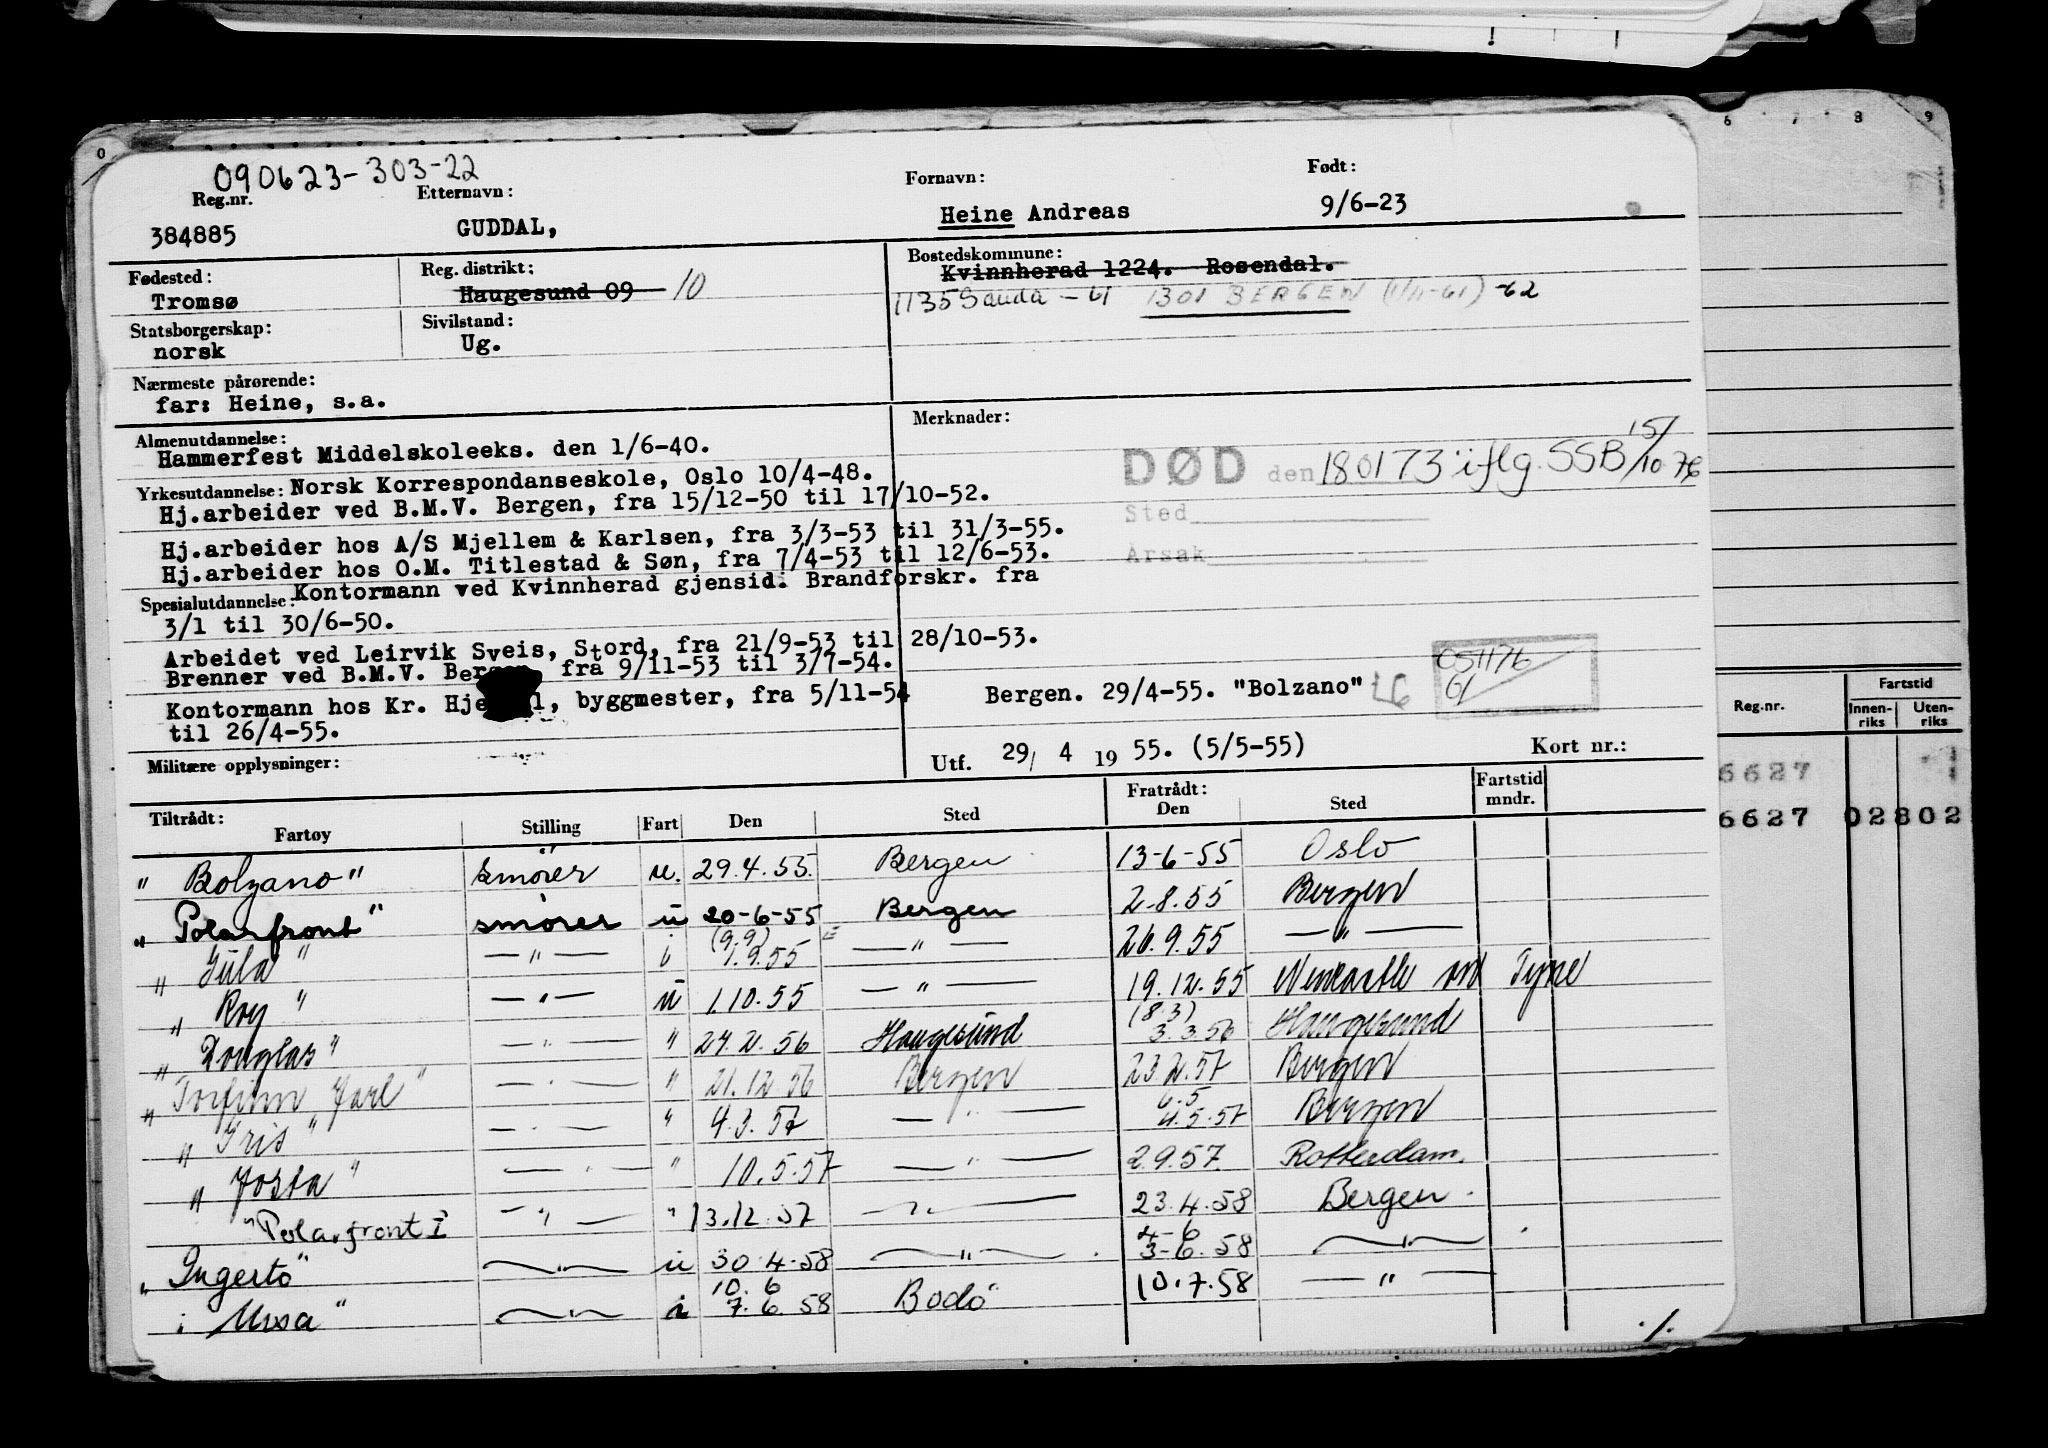 6 7 8 9
0
090623-303-22
Reg.nr. Etternavn: Fornavn: Født:
384885 GUDDAL, Heine Andreas 9/6-23
Fødested: Reg. distrikt: Bostedskommune:
Tromsø Haugesund 09 10 Kvinnherad 1224. Rosendal.
1135 Sauda - 61 1301 BERGEN (1/11-61) -62
Statsborgerskap: Sivilstand:
norsk Ug.
Nærmeste pårørende:
far: Heine, s.a.
Almenutdannelse: Merknader:
Hammerfest Middelskoleeks. den 1/6-40.
DØD den 180173 iflg. SSB 15/10 76
Yrkesutdannelse: Norsk Korrespondanseskole, Oslo 10/4-48.
Hj.arbeider ved B.M.V. Bergen, fra 15/12-50 til 17/10-52.
Sted
Hj.arbeider hos A/S Mjellem & Karlsen, fra 3/3-53 til 31/3-55.
Hj.arbeider hos O.M. Titlestad & Søn, fra 7/4-53 til 12/6-53.
Årsak
Spesialutdannelse: Kontormann ved Kvinnherad gjensid. Brandforskr. fra
3/1 til 30/6-50.
Arbeidet ved Leirvik Sveis, Stord, fra 21/9-53 til 28/10-53.
Brenner ved B.M.V. Bergen, fra 9/11-53 til 3/7-54.
051176
61
Kontormann hos Kr. Hje l, byggmester, fra 5/11-54 Bergen. 29/4-55. "Bolzano"
til 26/4-55.
Militære opplysninger: Utf. 29/ 4 19 55. (5/5-55) Kort nr.:
Reg.nr. Fartstid
Innen-riks Uten-riks
6627
6627 02802
Tiltrådt: Fratrådt: Fartstid mndr.
Fartøy Stilling Fart Den Sted Den Sted
" Bolzano" smører u. 29.4.55. Bergen 13-6-55 Oslo
" Polarfront" smører u 20-6-55 Bergen 2.8.55 Bergen
" Jula " — " — i (9.9) 1.9.55 — " — 26.9.55 — " —
" Roy " — " — u 1.10.55 — " — 19.12.55 Newcastle on Tyne
" Douglas" — " — " 27.2.56 Haugesund (8.3) 3.3.56 Haugesund
" Torfinn Jarl" — " — " 21.12.56 Bergen 23.2.57 Bergen
" Iris " — " — " 4.3.57 — " — 6.5 4.5.57 Bergen
" Josta " — " — " 10.5.57 — " — 2.9.57 Rotterdam.
"Polarfront I — " — " 13.12.57 — " — 23.4.58 Bergen.
" Ingertö" — " — u 30.4.58 — " — 4-6 3-6.58 — " —
" Ursa " — " — i 10.6 7.6.58 Bodö 10.7.58 — " —
./.